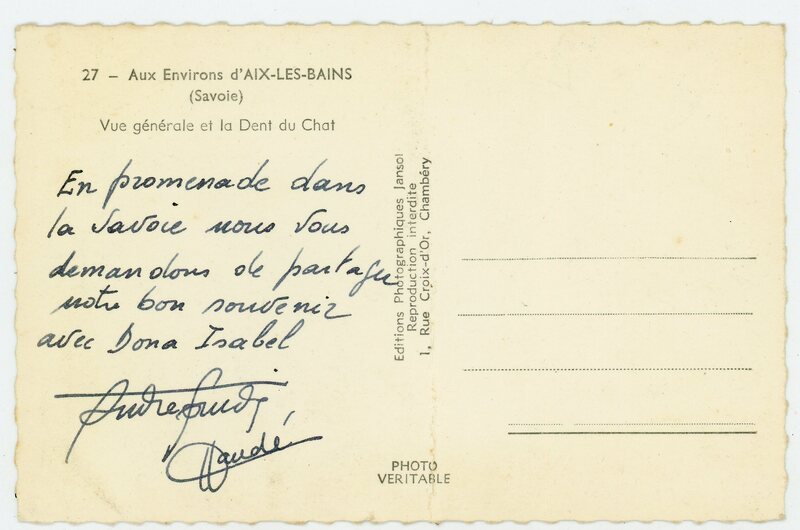 27 – Aux Environs d'AIX-LES-BAINS
(Savoie)
Vue générale et la Dent du Chat
En promenade dans
la Savoie nous vous
demandons de partager
notre bon souvenir
avec Dona Isabel
Editions Photographiques Jansol
Reproduction interdite
1, Rue Croix-d'Or, Chambéry
PHOTO
VERITABLE